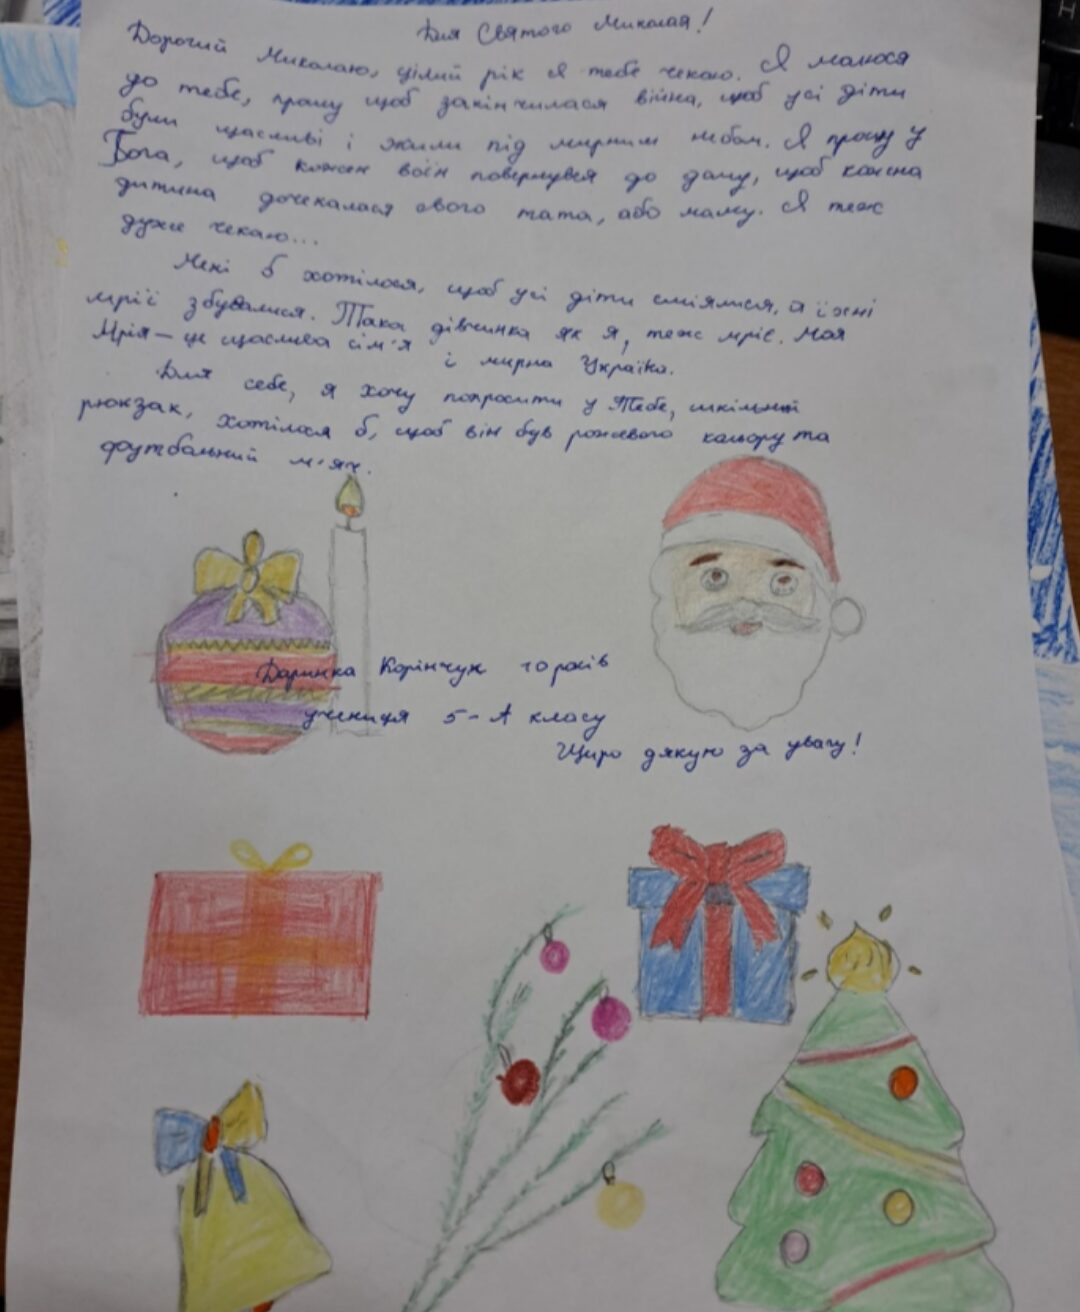 Для Святого Миколая!
Дорогий Миколаю, цілий рік я тебе чекаю. Я молюся
до тебе, прошу щоб закінчилася війна, щоб усі діти
були щасливі і жили під мирним небом. Я прошу у
Бога, щоб кожен воїн повернувся до дому, щоб кожна
дитина дочекалася свого тата, або маму. Я теж
дуже чекаю...
Мені б хотілося, щоб усі діти сміялися, а їхні
мрії збувалися. Така дівчинка як я, теж мріє. Моя
Мрія — це щаслива сім'я і мирна Україна.
Для себе, я хочу попросити у Тебе, шкільний
рюкзак, хотілося б, щоб він був рожевого кольору та
футбольний м'яч.
Даринка Корінчук 10 років
учениця 5-А класу
Щиро дякую за увагу!